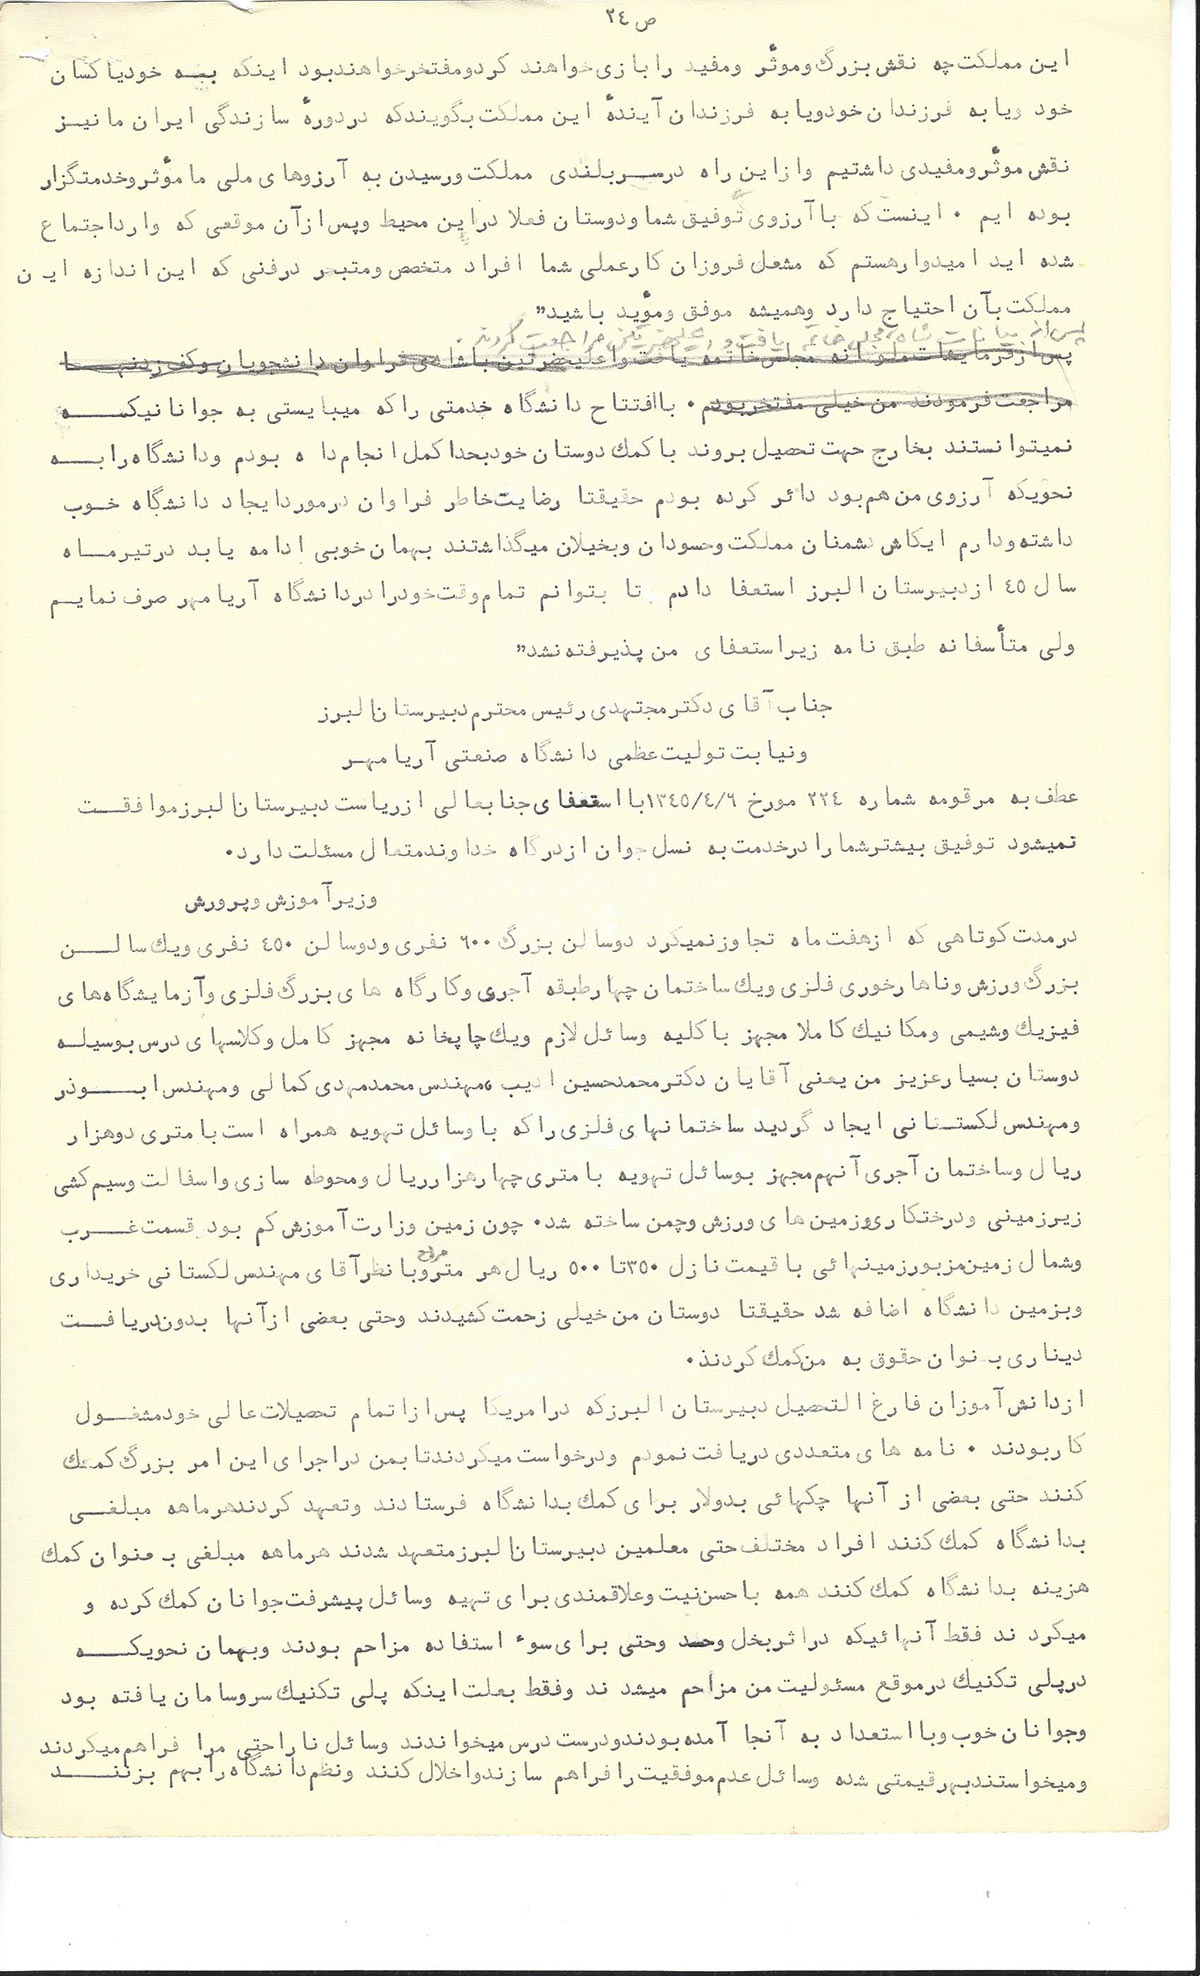 ص ٢٤
این مملکت چه نقش بزرگ و موثر و مفید را بازی خواهند کرد و مفتخر خواهند بود اینکه بـه خود یا کسان
خود و یا به فرزندان خود و یا به فرزندان آیندهٔ این مملکت بگویند که در دورهٔ سازندگی ایران ما نیـز
نقش موثر و مفیدی داشتیم و از این راه در سـربلندی مملکت و رسیدن به آرزوهای ملی ما مؤثر و خدمتگزار
بوده ایم ۰ اینست که با آرزوی توفیق شما و دوستان فعلا در این محیط و پس از آن موقعی که وارد اجتماع
شده اید امیدوار هستم که مشعل فروزان کار عملی شما افراد متخصص و متبحر در فنی که این اندازه این
مملکت بآن احتیاج دارد و همیشه موفق و مؤید باشید"
پس از بیانات شاه مجلس خاتمه یافت و اعلیحضرتین مراجعت کردند.
پس از فرمایشات ملوکانه مجلس خاتمه یافت و اعلیحضرتین با شادی فراوان دانشجویان و کف زدنهـا
مراجعت فرمودند من خیلی مفتخر بودم ۰ با افتتاح دانشگاه خدمتی را که میبایستی به جوانانیکـه
نمیتوانستند بخارج جهت تحصیل بروند با کمك دوستان خود بحد اکمل انجام داده بودم و دانشگاه را بـه
نحویکه آرزوی من هم بود دائر کرده بودم حقیقتا رضایت خاطر فراوان در مورد ایجاد دانشگاه خوب
داشته و دارم ایکاش دشمنان مملکت و حسودان و بخیلان میگذاشتند بهمان خوبی ادامه یابد در تیر مـاه
سال ٤٥ از دبیرستان البرز استعفا دادم تا بتوانم تمام وقت خود را در دانشگاه آریامهر صرف نمایـم
ولی متأسفانه طبق نامه زیر استعفای من پذیرفته نشد"
جناب آقای دکتر مجتهدی رئیس محترم دبیرستان البرز
و نیابت تولیت عظمی دانشگاه صنعتی آریامهـر
عطف به مرقومه شماره ٢٢٤ مورخ ١٣٤٥/٤/٦ با استعفای جنابعالی از ریاست دبیرستان البرز موافقـت
نمیشود توفیق بیشتر شما را در خدمت به نسل جوان از درگاه خداوند متعال مسئلت دارد۰
وزیر آموزش و پرورش
در مدت کوتاهی که از هفت ماه تجاوز نمیکرد دو سالن بزرگ ٦٠٠ نفری و دو سالن ٤٥٠ نفری و یك سالـن
بزرگ ورزش و ناهارخوری فلزی و یك ساختمان چهار طبقه آجری و کارگاه های بزرگ فلزی و آزمایشگاه های
فیزیك و شیمی و مکانیك کاملا مجهز با کلیه وسائل لازم و یك چاپخانه مجهز کامل و کلاسهای درس بوسیلـه
دوستان بسیار عزیز من یعنی آقایان دکتر محمد حسین ادیب ،مهندس محمد مهدی کمالی و مهندس ابـوذر
و مهندس لکستانی ایجاد گردید ساختمانهای فلزی را که با وسائل تهویه همراه است با متری دو هزار
ریال و ساختمان آجری آنهم مجهز بوسائل تهویه با متری چهار هزار ریال و محوطه سازی و اسفالت و سیم کشی
زیرزمینی و درختکاری و زمین های ورزش و چمن ساخته شد۰ چون زمین وزارت آموزش کم بود قسمت غـرب
و شمال زمین مزبور زمینهائی با قیمت نازل ٣٥٠ تا ٥٠٠ ریال هر متر مربع و با نظر آقای مهندس لکستانی خریداری
و بزمین دانشگاه اضافه شد حقیقتا دوستان من خیلی زحمت کشیدند و حتی بعضی از آنها بدون دریافـت
دیناری بعنوان حقوق به من کمك کردند۰
از دانش آموزان فارغ التحصیل دبیرستان البرز که در امریکا پس از اتمام تحصیلات عالی خود مشغـول
کار بودند ۰ نامه های متعددی دریافت نمودم و درخواست میکردند تا بمن در اجرای این امر بزرگ کمك
کنند حتی بعضی از آنها چکهائی بدولار برای کمك بدانشگاه فرستادند و تعهد کردند هر ماهه مبلغـی
بدانشگاه کمك کنند افراد مختلف حتی معلمین دبیرستان البرز متعهد شدند هر ماهه مبلغی بعنوان کمك
هزینه بدانشگاه کمك کنند همه با حسن نیت و علاقمندی برای تهیه وسائل پیشرفت جوانان کمك کرده و
میکردند فقط آنهائیکه در اثر بخل و حسد و حتی برای سوء استفاده مزاحم بودند و بهمان نحویکـه
در پلی تکنیك در موقع مسئولیت من مزاحم میشدند و فقط بعلت اینکه پلی تکنیك سر و سامان یافته بود
و جوانان خوب و با استعداد به آنجا آمده بودند و درست درس میخواندند وسائل ناراحتی مرا فراهم میکردند
و میخواستند بهر قیمتی شده وسائل عدم موفقیت را فراهم سازند و اخلال کنند و نظم دانشگاه را بهم بزننـد